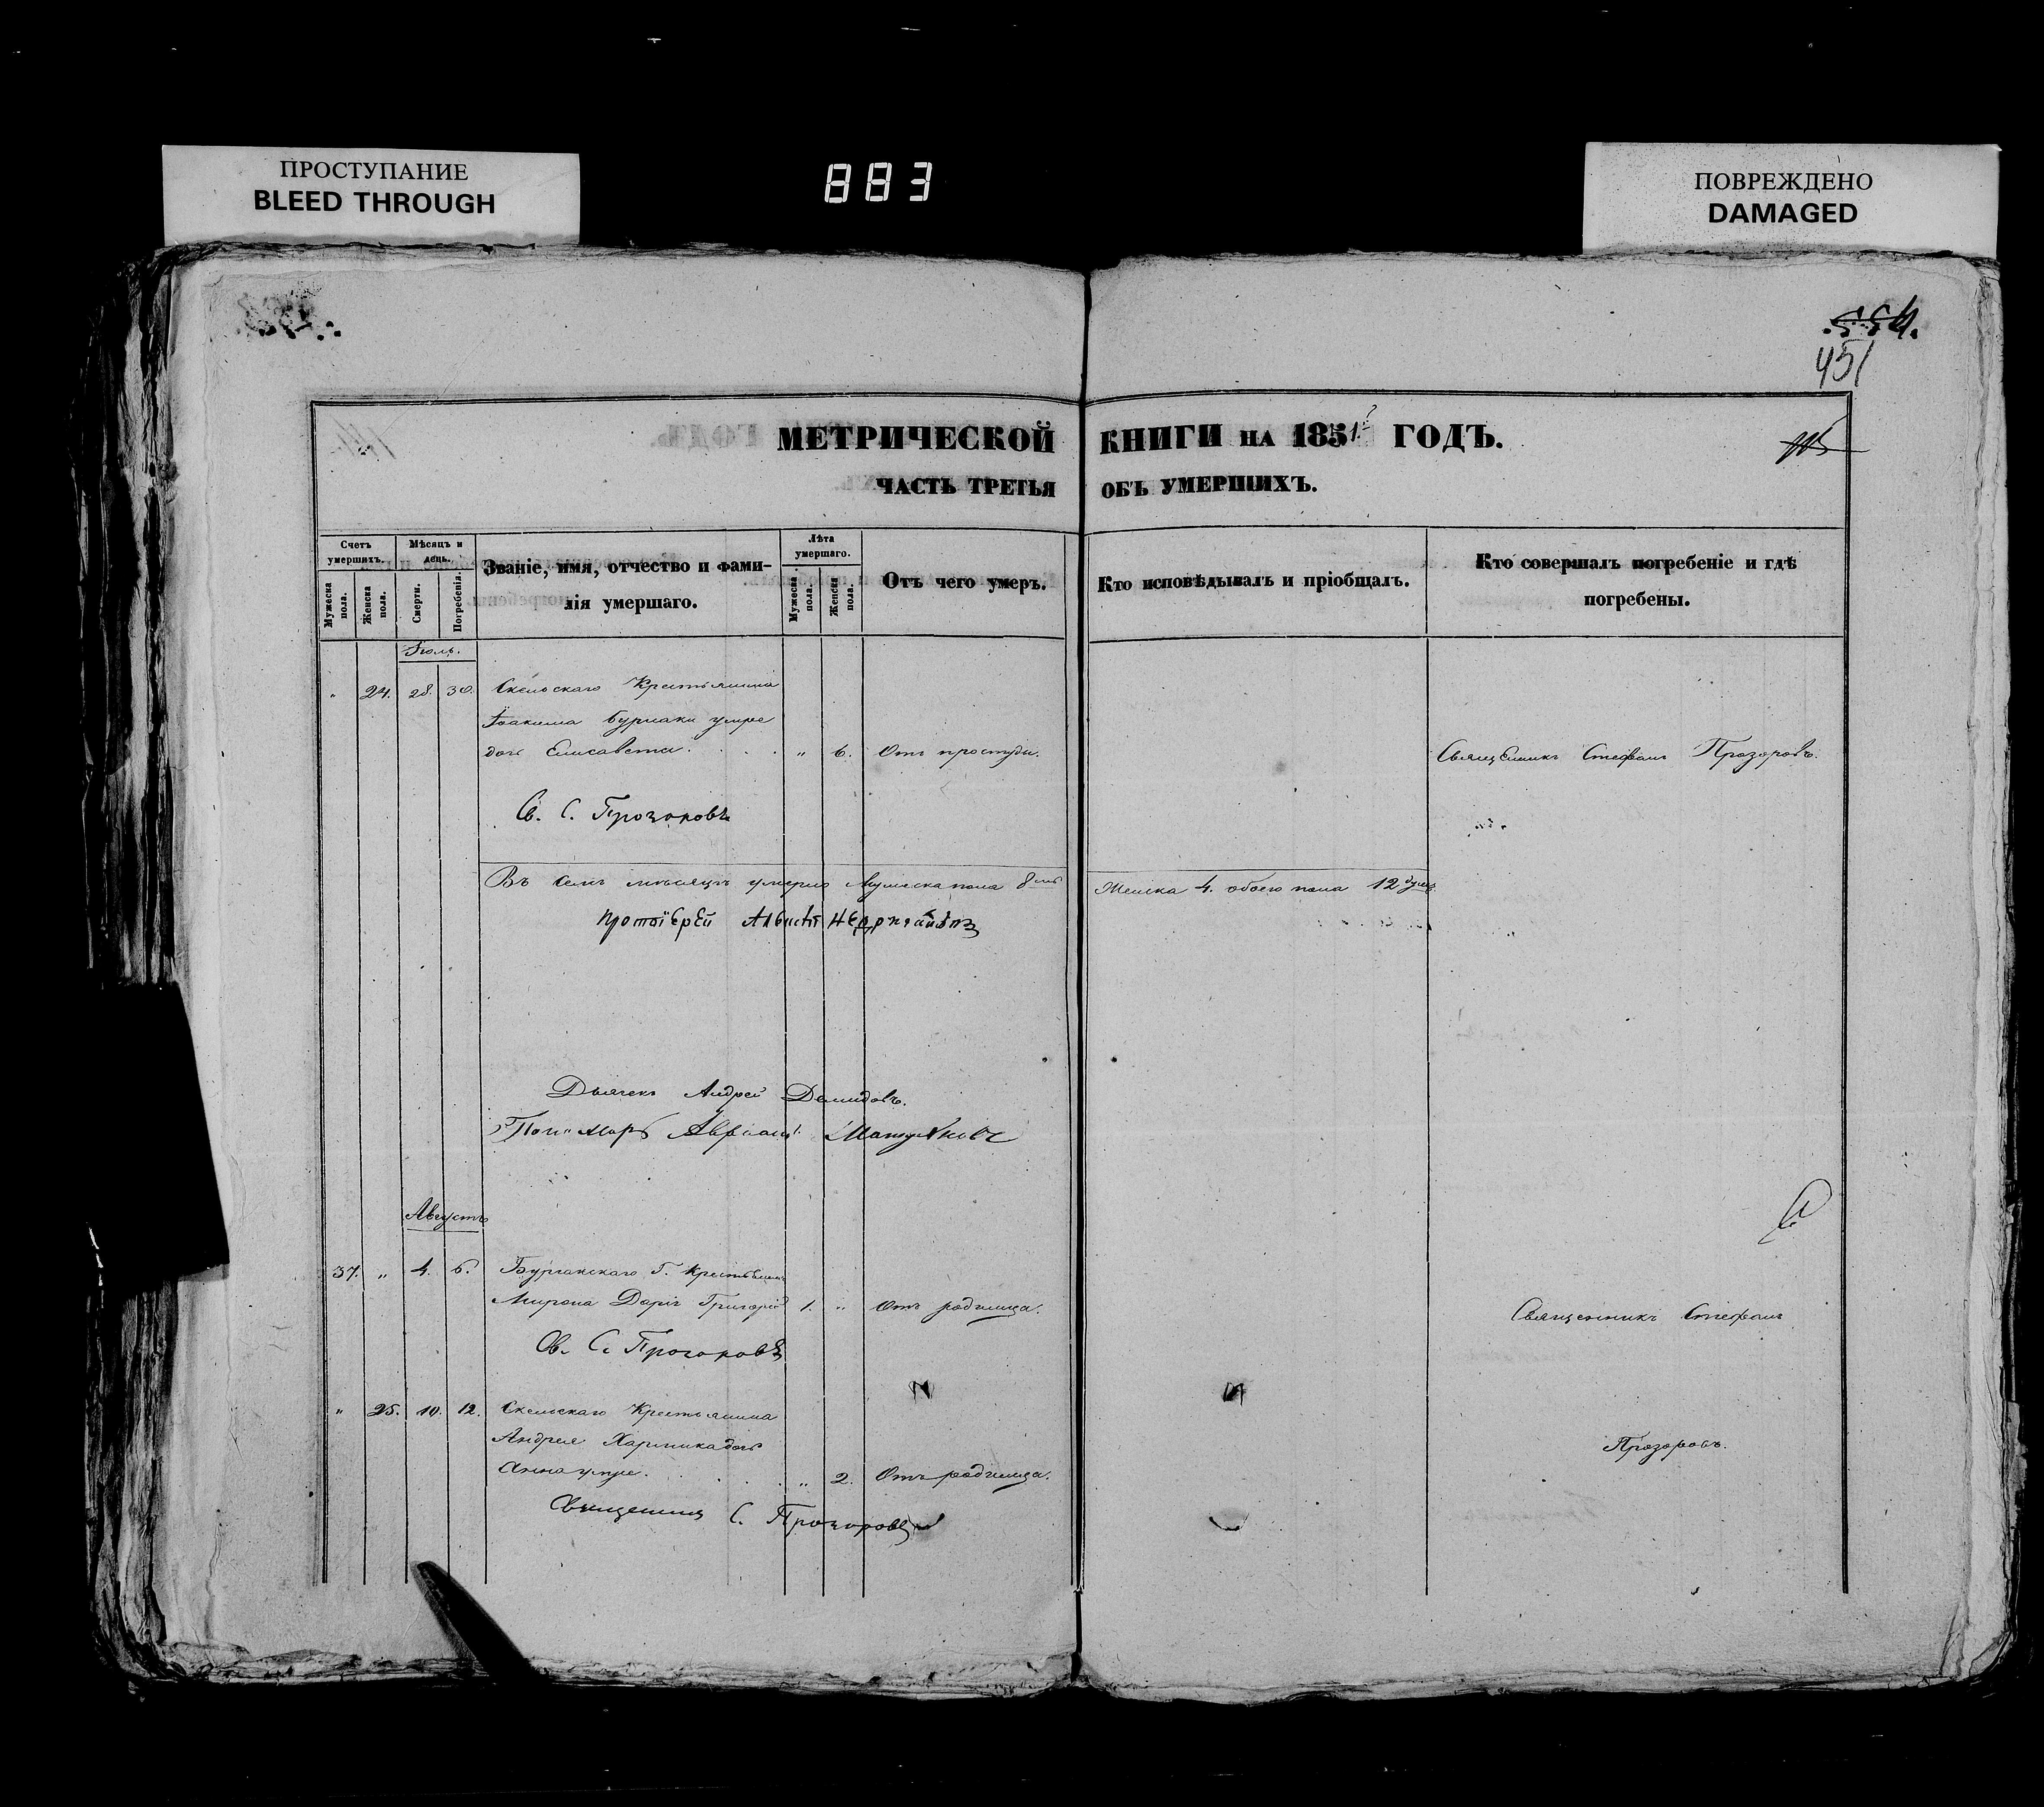 ПРОСТУПАНИЕ
BLEED THROUGH
883
ПОВРЕЖДЕНО
DAMAGED
554.
451
МЕТРИЧЕСКОЙ КНИГИ НА 1851 ГОДЪ.
ЧАСТЬ ТРЕТЬЯ ОБЪ УМЕРШИХЪ.
Счетъ умершихъ.
Мужеска пола.
Женска пола.
Мѣсяцъ и день.
Смерти.
Погребенія.
Званіе, имя, отчество и фами-
лія умершаго.
Лѣта умершаго.
Мужеска пола.
Женска пола.
Отъ чего умеръ.
Кто исповѣдывалъ и пріобщалъ.
Кто совершалъ погребеніе и гдѣ
погребены.
Іюль.
" 24. 28. 30. Скельскаго Крестьянина
Іоакима Бурлаки умре
дочь Елисавета. " 6. Отъ простуды. Священникъ Стефанъ Прозоровъ.
Св. С. Прозоровъ
Въ семъ мѣсяцѣ умерло Мужеска пола 8мь Женска 4. обоего пола 12 душъ.
Протоіерей
Дьячекъ Андрей Демидовъ.
Пономарь
Августъ
37. " 4. 6. Крестьянина
Мирона Григорій 1. " Отъ родимца. Священникъ Стефанъ
Св. С. Прозоровъ
" 25. 10. 12. Скельскаго Крестьянина
Андрея дочь Прозоровъ.
Анна умре. " 2. Отъ родимца.
Священникъ С. Прозоровъ